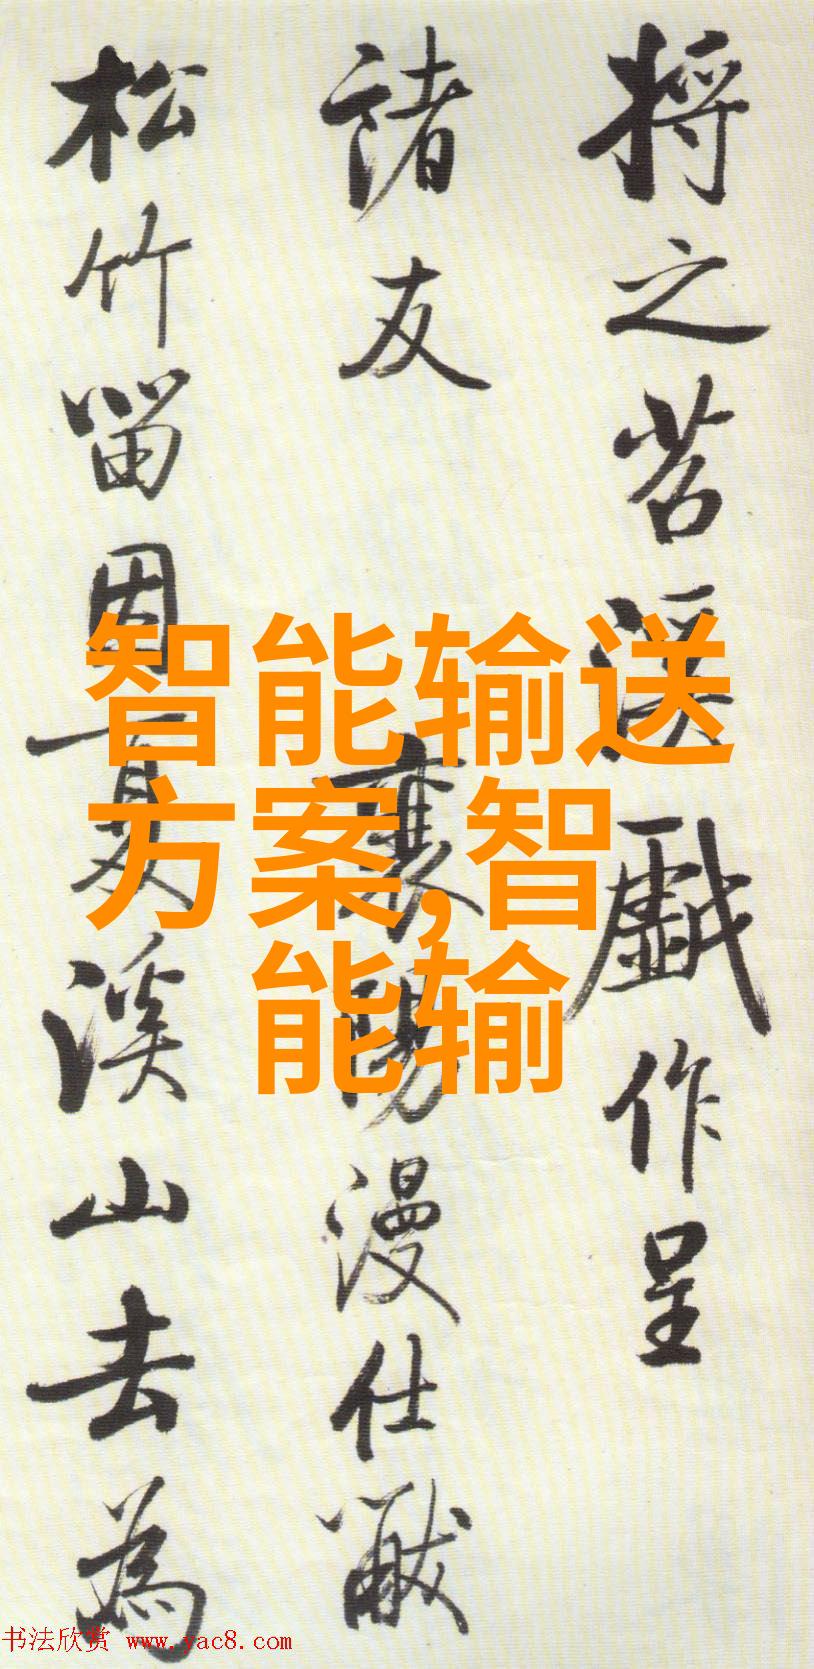 將之苕溪戯作呈
諸友 襄陽漫仕黻
松竹留因夏溪山去為
智能输送
方案,智
能输
书法欣赏 www.yac8.com